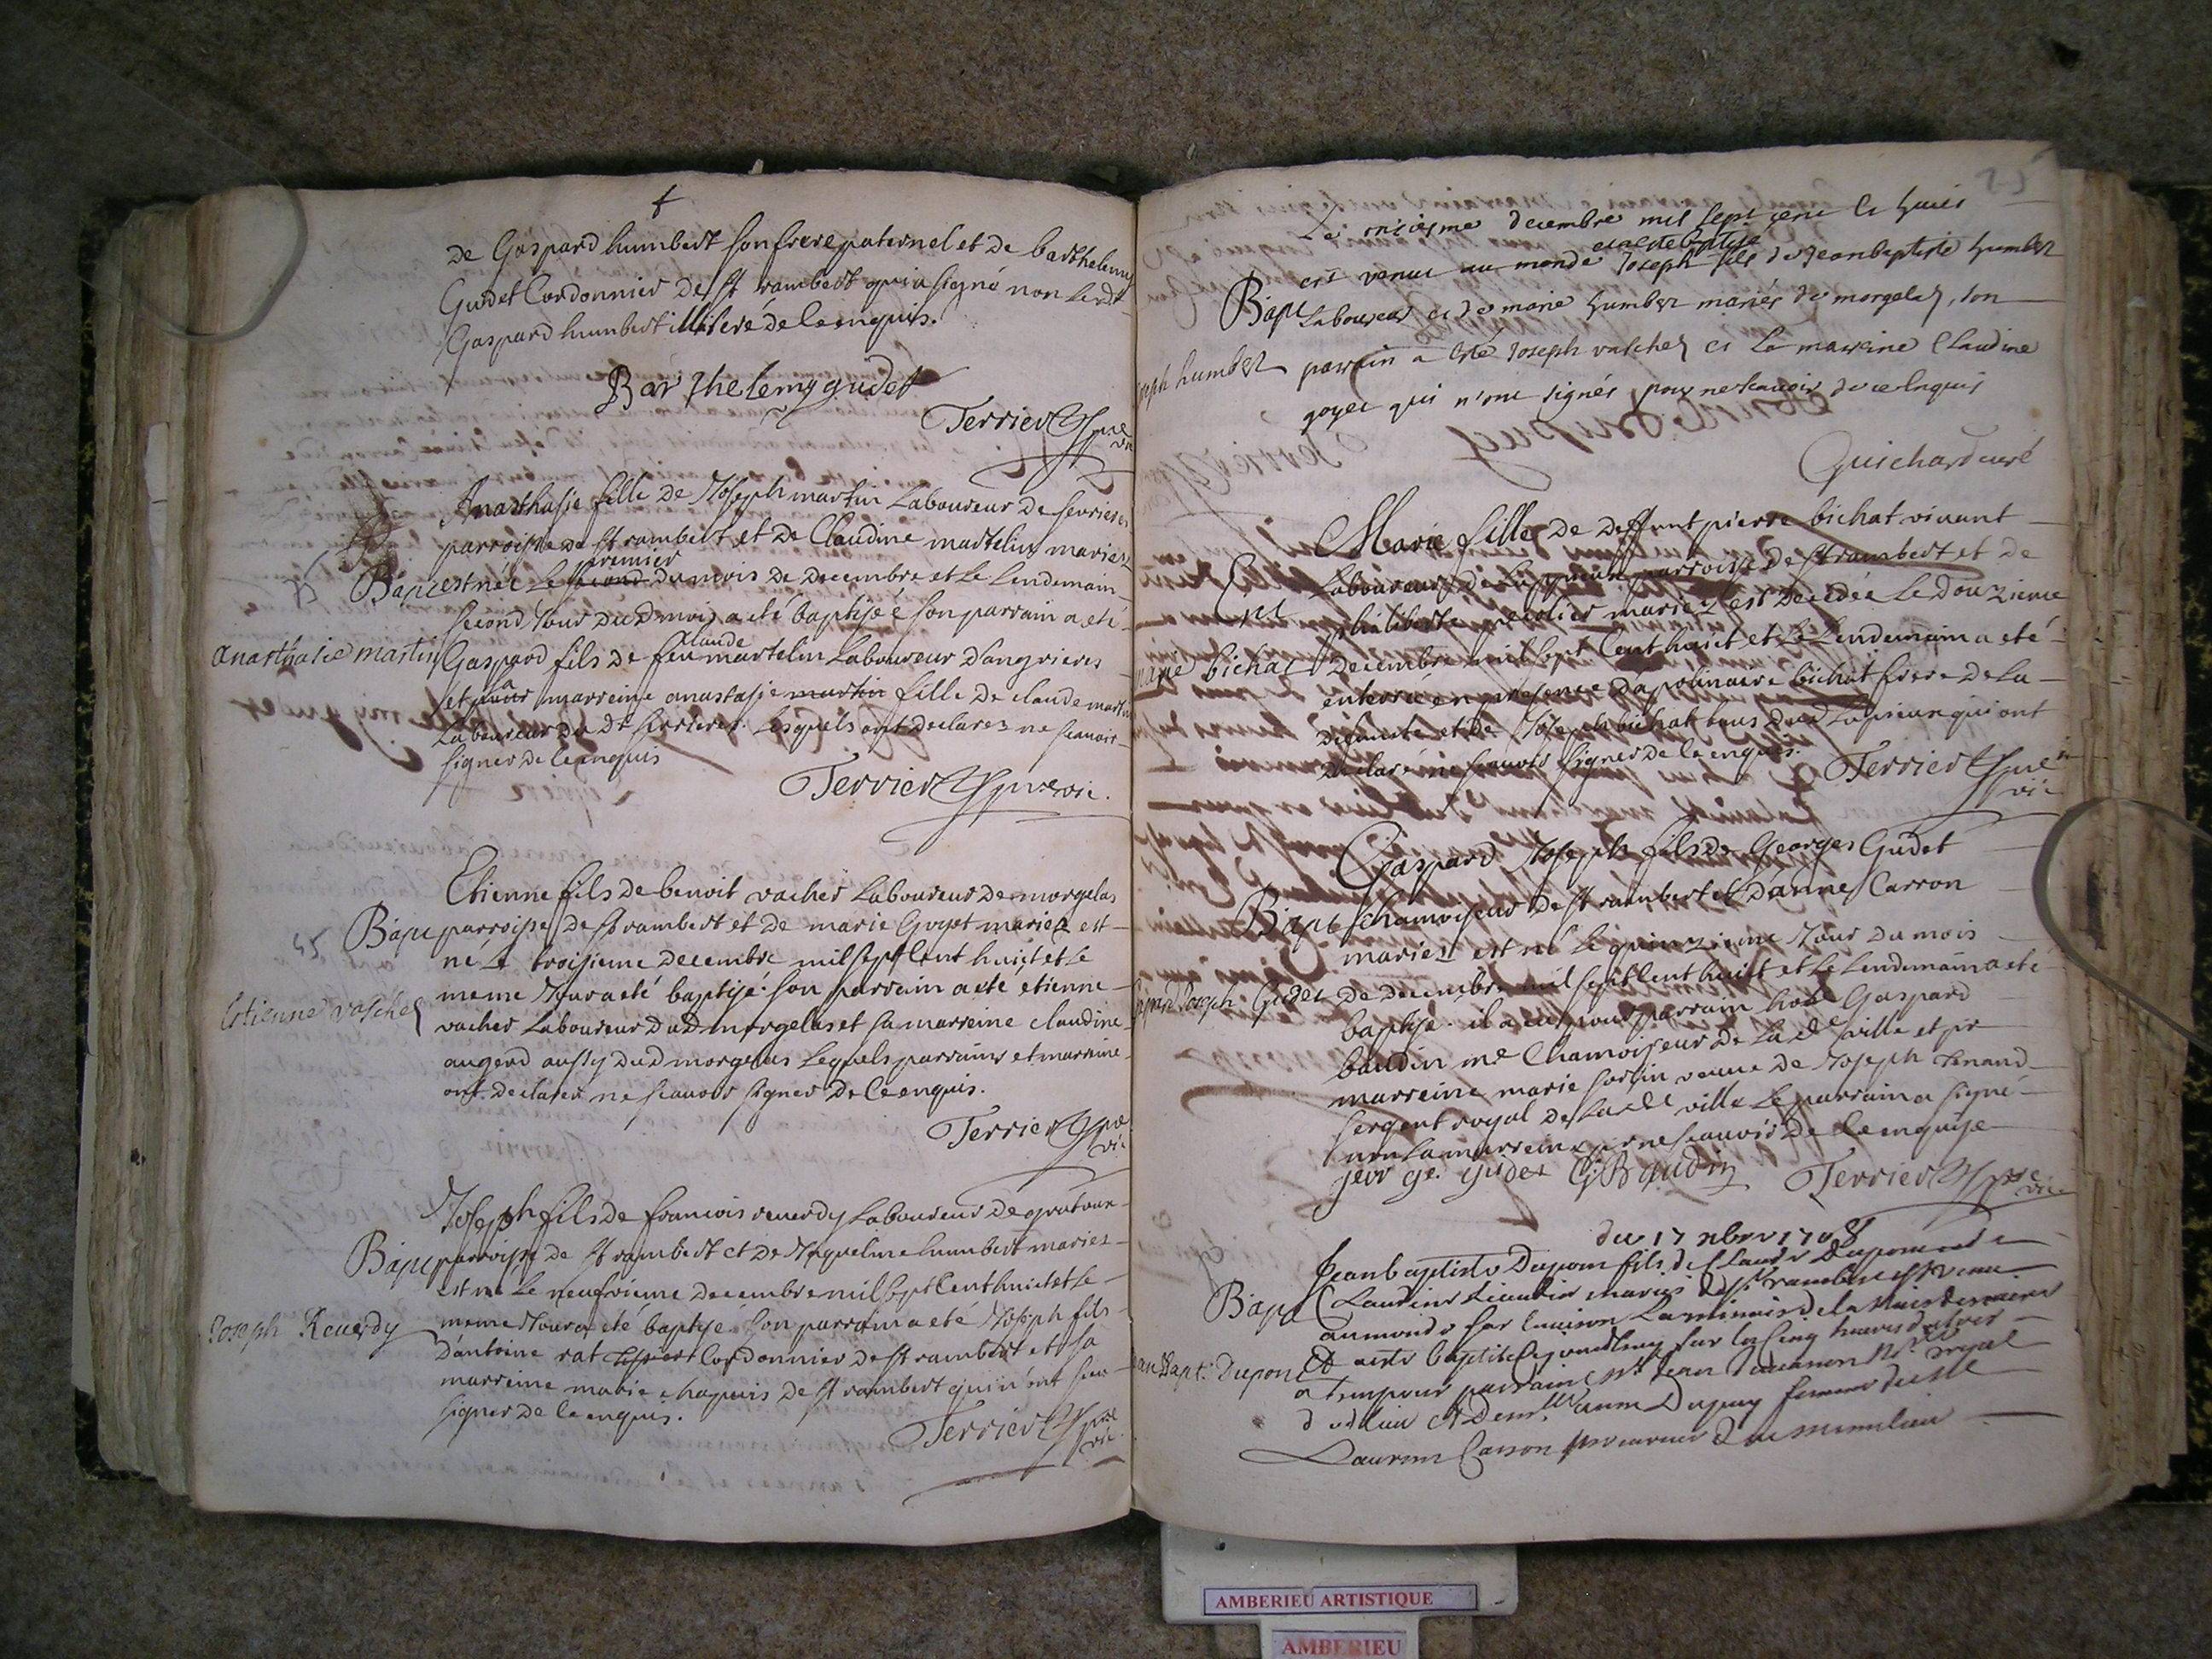 de Gaspard humbert son frere paternel et de barthelemy
Gudet Cordonnier de St rambert qui a signé non led
Gaspard humbert illiteré de ce enquis.
Barthelemy gudet
Terrier ptre vic
Anasthasie fille de Joseph martin Laboureur de serrieres
parroisse de St rambert et de Claudine martelin mariez
premier
Bapt est née le second du mois de decembre et le lendemain
second Jour dud mois a eté baptisée son parrain a eté
anasthasie martin
claude
Gaspard fils de feu martelin Laboureur d'angrieres
et sa marreine anastasie martin fille de claude martin
Laboureur du dt serrieres Lesquels ont declarez ne scauoir
signer de ce enquis
Terrier ptre vic.
Etienne fils de benoit vacher Laboureur de morgelas
Bapt parroisse de St rambert et de marie Goyet mariez est
né Le troisieme decembre mil sept Cent huict et Le
meme Jour a eté baptisé son parrain a eté etienne
Estienne vascher
vacher Laboureur dud morgelas et sa marreine claudine
augerd aussy dud morgelas Lequels parrains et marreine
ont declarer ne scauoir signer de Ce enquis.
Terrier ptre vic
Joseph fils de francois reuerdy Laboureur de gratoux
Bapt parroisse de St rambert et de Jaqueline humbert mariez
est né Le neufvieme decembre mil sept Cent huict et Le
Joseph Reuerdy
meme Jour a eté baptisé son parrain a eté Joseph fils
d'antoine rat Cordonnier de St rambert et sa
marreine marie chapuis de St rambert qui n'ont sceu
signer de ce enquis.
Terrier ptre vic.
Le onziesme decembre mil sept cent et huict
et a esté baptisé
est venu au monde Joseph fils de Jean baptiste humber
Bapt Laboureur et de marie humber mariés de morgelas, son
Joseph humber parrain a esté Joseph vascher et la marreine Claudine
goyet qui n'ont signés pour ne scauoir de ce enquis
Guichard curé
Marie fille de deffunt pierre bichat viuant
Laboureur de parroisse de St rambert et de
philiberte mariez est decedée Le douzieme
marie bichat decembre mil sept Cent huict et Le Lendemain a eté
enterrée en presence d'apolinaire bichat frere de La
defuncte et de Joseph bichat tous dud qui ont
declaré ne scauoir signer de ce enquis.
Terrier ptre vic
Gaspard Joseph fils de Georges Gudet
Bapt Chamoiseur de St rambert et d'anne Carron
mariez est né le quinzieme Jour du mois
Gaspard Joseph Gudet de decembre mil sept Cent huict et Le Lendemain a eté
baptisé. il a eu pour parrain hoble Gaspard
baudin me Chamoiseur de La de ville et pr
marreine marie sorlin veuue de Joseph tenand
sergent royal de La de ville Le parrain a signé
non La marreine pr ne scauoir de ce enquise
george gudet G Baudin Terrier ptre vic
du 17 xbre 1708
Jean baptiste Dupont fils de Claude Dupont et de
Bapt Claudine mariés de St rambert est venu
au monde sur enuiron La minuit de la nuit derniere
Jean Bapt. Dupont et a esté baptisé Ce sur les cinq heures du soir
a tenu pour parrain Mr Jean Nre royal
dud lieu et demlle anne Dupuy femme de Me
Laurent Carron procureur du mesme lieu
AMBERIEU ARTISTIQUE
AMBERIEU